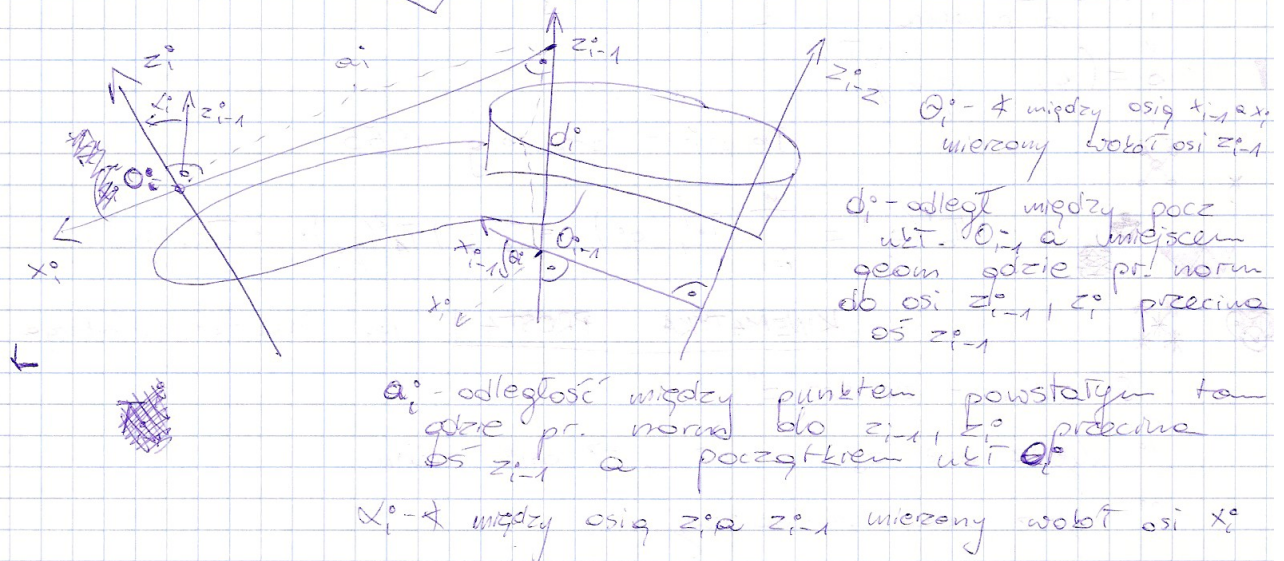 z_i
α_i
z_{i-1}
a_i
z_{i-1}
z_{i-2}
d_i
O_i
x_i
x_{i-1}
θ_i
O_{i-1}
x_i
θ_i - ∢ między osią x_{i-1} a x_i
mierzony wokół osi z_{i-1}
d_i - odległ między pocz
ukł. O_{i-1} a miejscem
geom gdzie pr. norm
do osi z_{i-1}, z_i przecina
oś z_{i-1}
a_i - odległość między punktem powstałym tam
gdzie pr. norm do z_{i-1}, z_i przecina
oś z_{i-1} a początkiem ukł O_i
α_i - ∢ między osią z_i a z_{i-1} mierzony wokół osi x_i